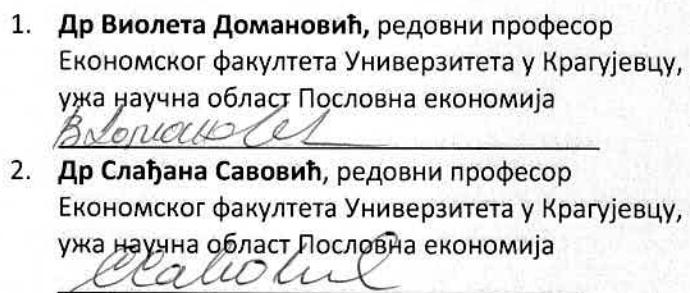 1. Др Виолета Домановић, редовни професор
Економског факултета Универзитета у Крагујевцу,
ужа научна област Пословна економија
2. Др Слађана Савовић, редовни професор
Економског факултета Универзитета у Крагујевцу,
ужа научна област Пословна економија